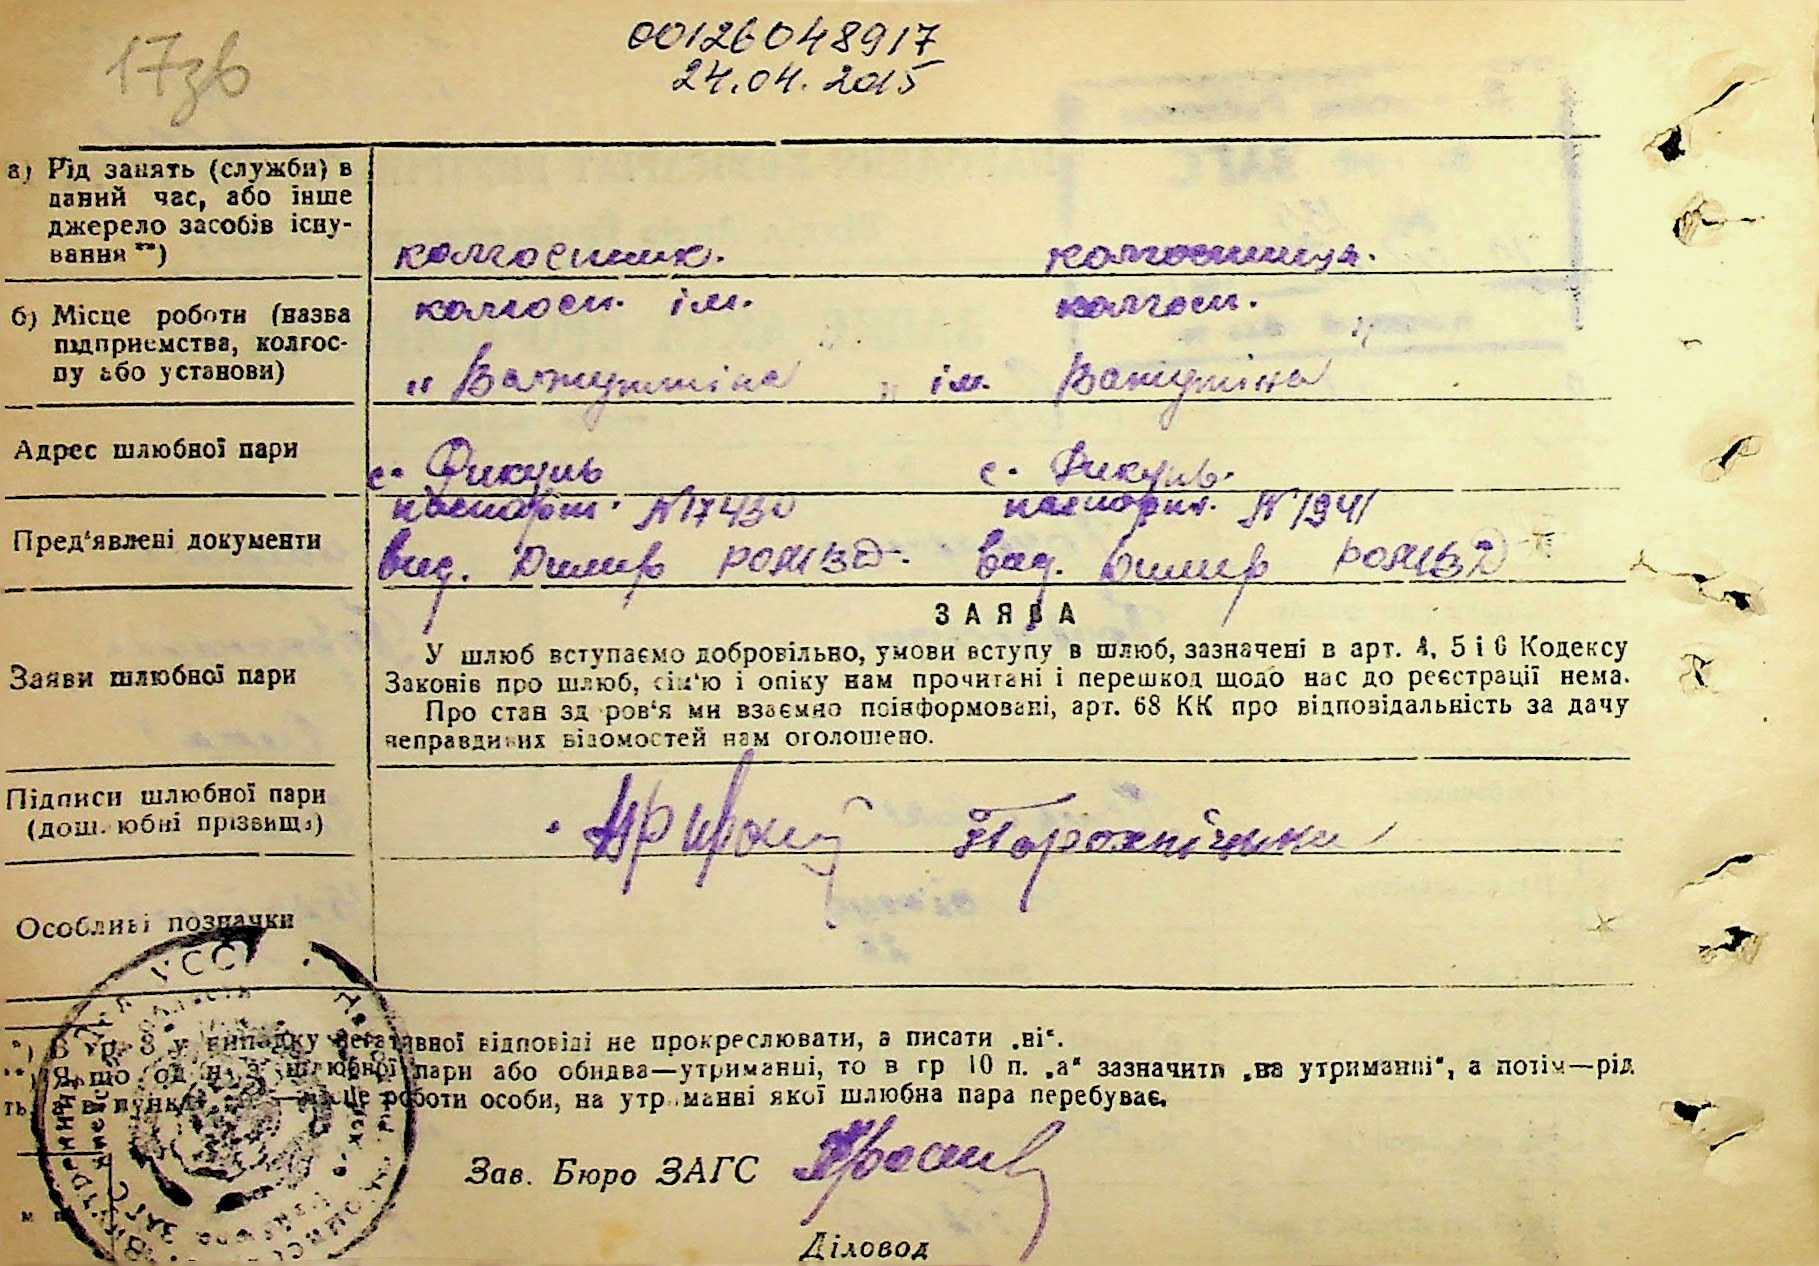 17зв
00126048917
24.04.2015
а) Рід занять (служби) в
даний час, або інше
джерело засобів існу-
вання **)
колгоспник. колгоспниця.
б) Місце роботи (назва
підприємства, колгос-
пу або установи)
колгосп. ім. колгосп.
"Ватутіна" ім. Ватутіна
Адрес шлюбної пари
с. Дикунь с. Дикунь.
Пред'явлені документи
паспорт. №17430 паспорт. №1941
вид. Димир РОМВД. вид. Димир РОМВД
Заяви шлюбної пари
ЗАЯВА
У шлюб вступаємо добровільно, умови вступу в шлюб, зазначені в арт. 4, 5 і 6 Кодексу
Законів про шлюб, сім'ю і опіку нам прочитані і перешкод щодо нас до реєстрації нема.
Про стан здоров'я ми взаємно поінформовані, арт. 68 КК про відповідальність за дачу
неправдивих відомостей нам оголошено.
Підписи шлюбної пари
(дошлюбні прізвища)
Особливі позначки
*) В гр. 8 у випадку негативної відповіді не прокреслювати, а писати „ні".
**) Якщо один з шлюбної пари або обидва—утриманці, то в гр 10 п. „а" зазначити „на утриманні", а потім—рід
в пункті—місце роботи особи, на утриманні якої шлюбна пара перебуває.
УССР
ЗАГС
м п
Зав. Бюро ЗАГС
Діловод